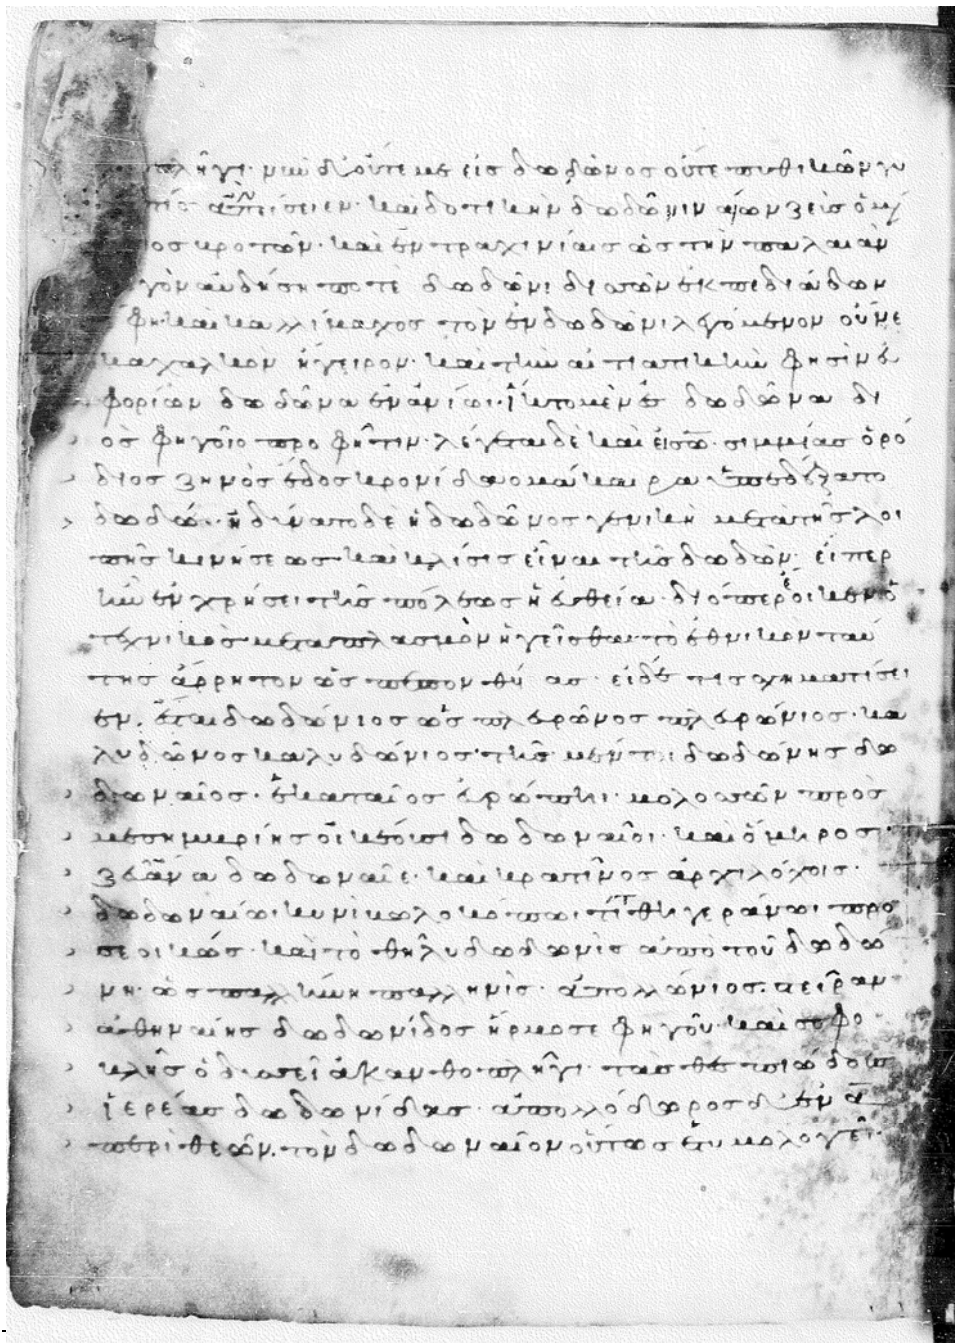 πλῆγι· νῦν δ' οὔτέ με εἰς δωδῶνος οὔτε πυθικῶν γυ
τίς ἂν πείσειεν· καὶ δοτικὴν δωδῶνιν
ος κροτῶν· καὶ ἐν τραχινίαις ὡς τὴν παλαιὰν
γὸν αὐδῆσαί ποτὲ δωδῶνι δισσῶν ἐκ πελειάδων
φη· καὶ καλλίμαχος τὸν ἐν δωδῶνι λεγόμενον οὕνε
κα χαλκὸν ἤγειρον· καὶ τὴν αἰτιατικὴν φησὶν εὐ
φορίων δωδῶνα ἐν ἀνίωι· ἵκτο μὲν ἐς δωδῶνα δι
ὸς φηγοῖο προφῆτιν· λέγεται δὲ καὶ εἰς ω· σιμμίας ὁ ῥό
διος ζηνὸς ἕδος κρονίδαο μάκαιρα ὑπεδέξατο
δωδώ· ἢ δύναται δὲ ἡ δωδῶνος γενικὴ μετὰ τῆς λοι
πῆς κινήσεως καὶ κλίσις εἶναι τῆς δωδών· εἴπερ
ἦν ἐν χρήσει τῆς πόλεως ἡ εὐθεῖα· διόπερ ἔοικεν ὁ
τεχνικὸς μεταπλασμὸν ἡγεῖσθαι· τὸ ἐθνικὸν ταύ
της ἄρρητον ὡς εἰ δέ τις σχηματίσει
ἐν, ἔσται δωδώνιος ὡς πλευρῶνος πλευρώνιος· κα
λυδῶνος καλυδώνιος· τῆς μέντοι δωδώνης δω
δωναῖος· ἑκαταῖος εὐρώπηι· μολοσσῶν πρὸς
μεσημβρίης οἰκέουσι δωδωναῖοι· καὶ ὅμηρος·
ζεῦ ἄνα δωδωναῖε· καὶ κρατῖνος ἀρχιλόχοις·
δωδωναίωι κυνὶ βωλοκόπωι· τίτθη γεράνωι προσ
εοικώς· καὶ τὸ θηλυ δωδωνὶς ἀπὸ τοῦ δωδώ
νη· ὡς παλλήνη παλληνίς· ἀπολλώνιος· στεῖραν
ἀθηναίης δωδωνίδος ἥρμοσε φηγοῦ· καὶ σοφο
κλῆς ὀδυσσεῖ ἀκανθοπλῆγι· τὰς θεσπιωδοὺς
ἱερέας δωδωνίδας· ἀπολλόδωρος δ' ἐν α
περὶ θεῶν· τὸν δωδωναῖον οὕτως ἐτυμολογεῖ·